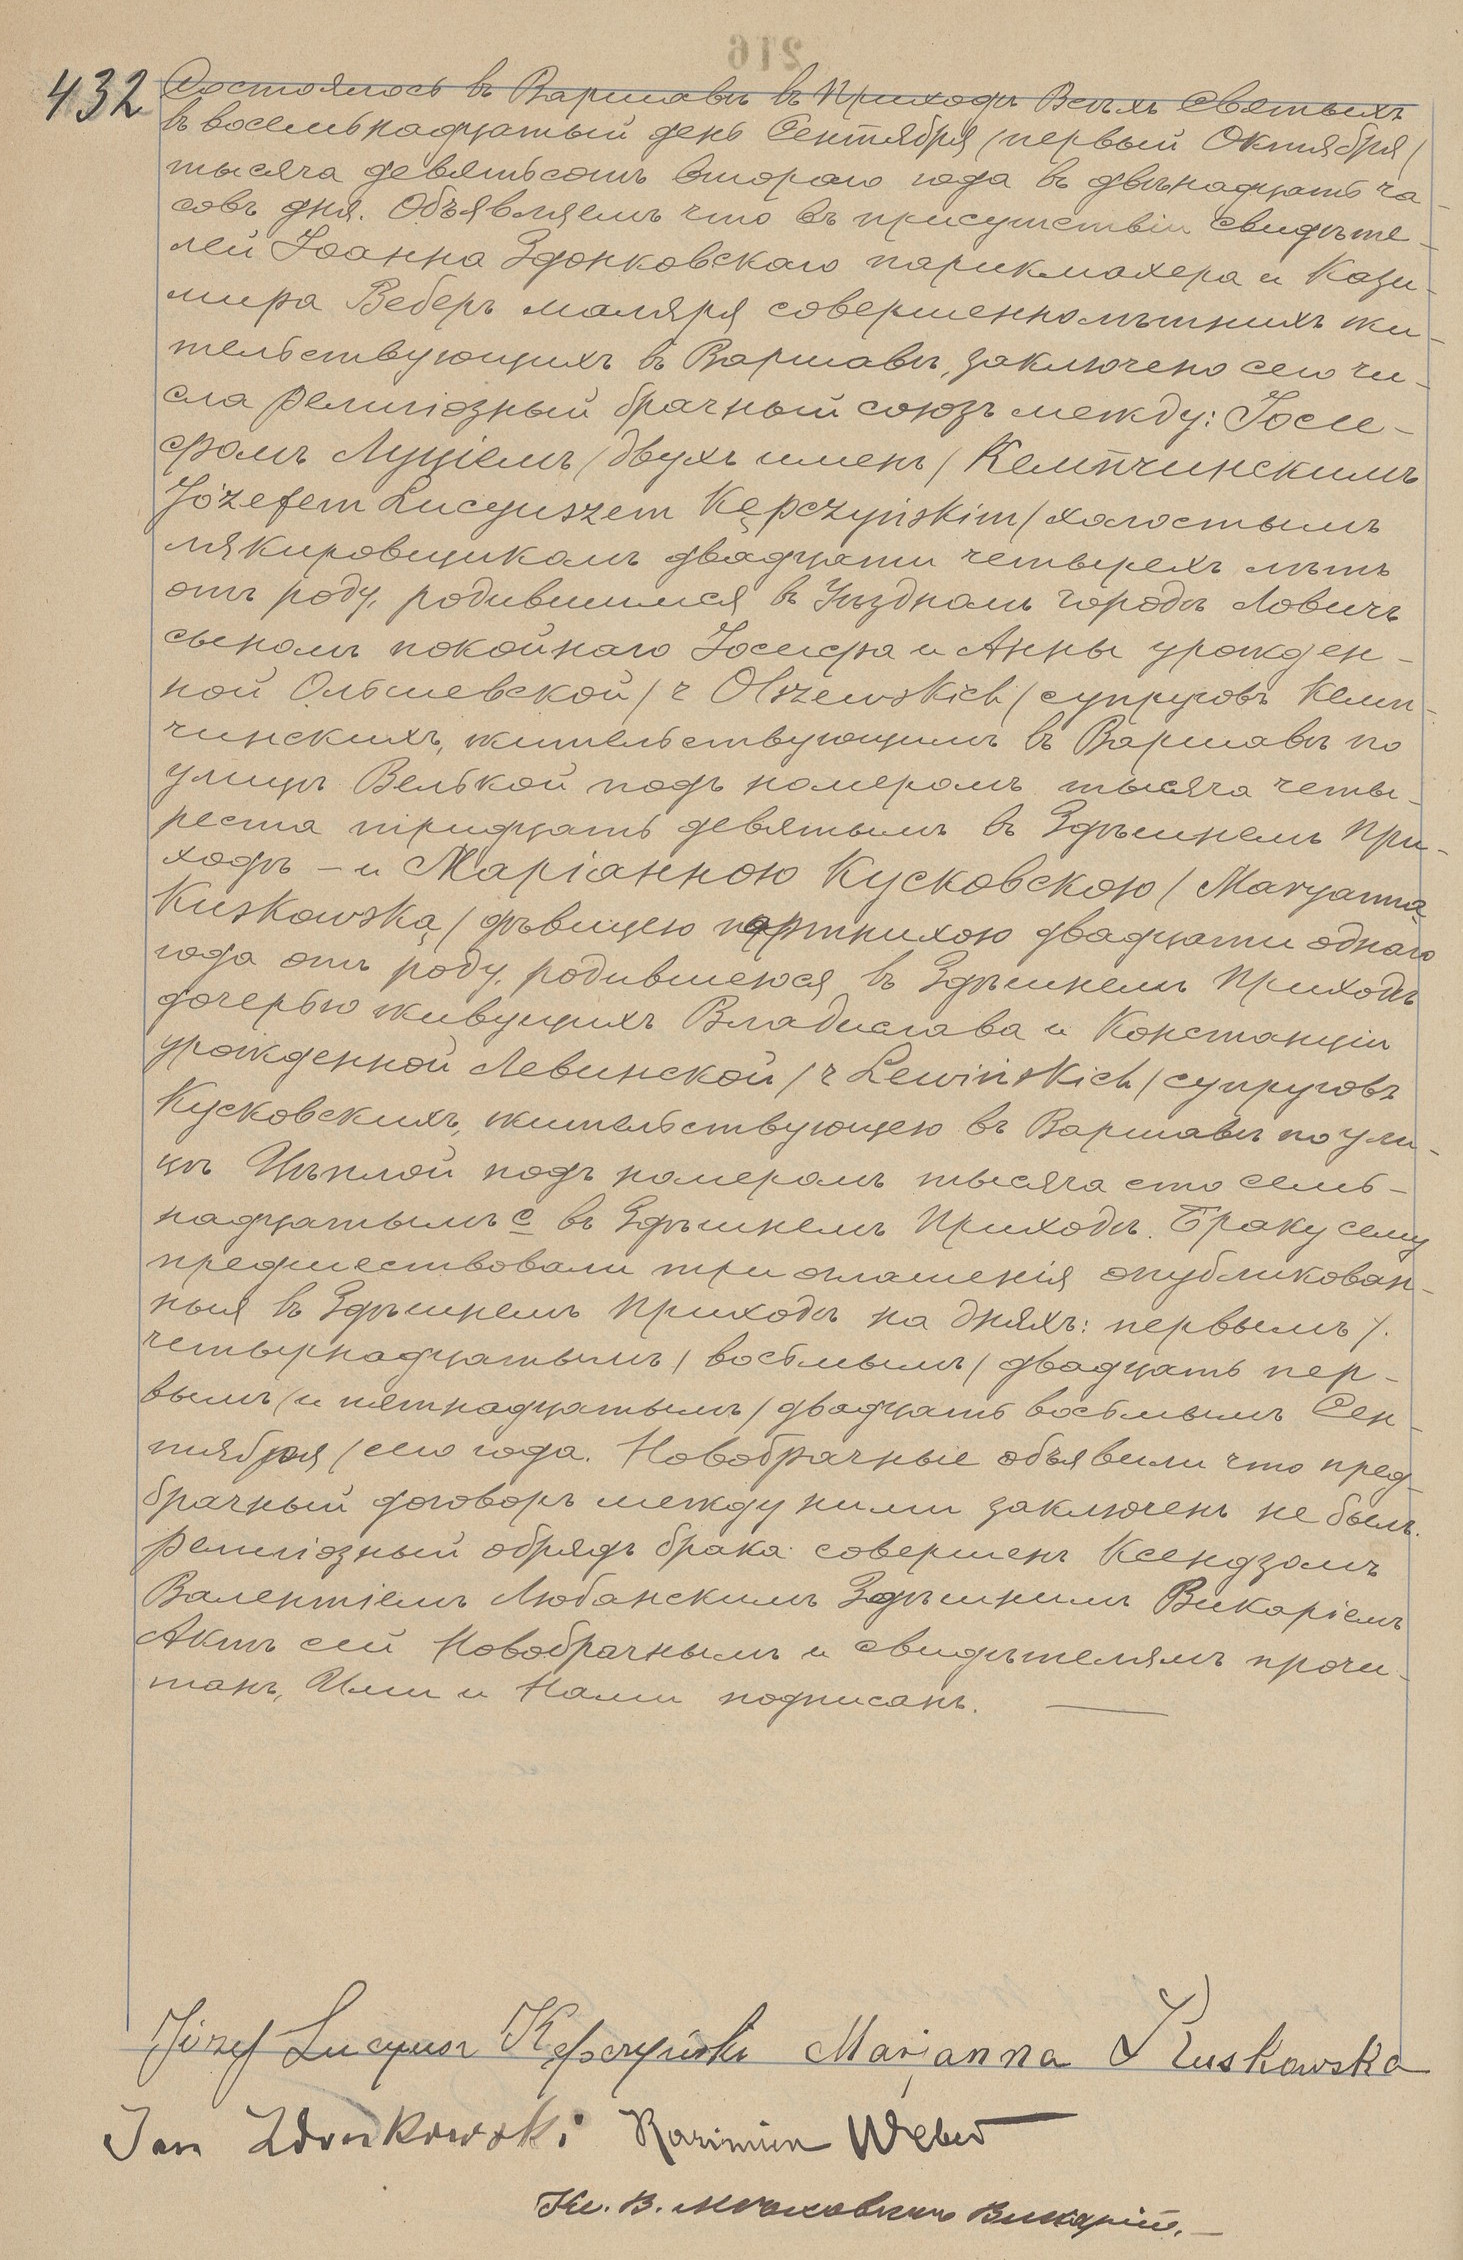 216
432 Состоялось въ Варшавѣ въ Приходѣ Всѣхъ Святыхъ
въ восемьнадцатый день Сентября /первый Октября/
тысяча девятьсотъ втораго года въ двѣнадцать ча-
совъ дня. Объявляемъ что въ присутствіи свидѣте-
лей Іоанна Здонковскаго парикмахера и Кази-
мира Веберъ маляря совершеннолѣтнихъ жи-
тельствующихъ въ Варшавѣ, заключено сего чи-
сла религіозный брачный союзъ между: Іоси-
фомъ Луціемъ /двухъ именъ/ Кемпчинскимъ
Józefem Lucyuszem Kępczyńskim/ холостымъ
лякировщикомъ двадцати четырехъ лѣтъ
отъ роду, родившимся въ Уѣздномъ городѣ Ловичъ
сыномъ покойнаго Іосифа и Анны урожден-
ной Ольшевской /z Olszewskich/ супруговъ Кемп-
чинскихъ, жительствующимъ въ Варшавѣ по
улицѣ Велькой подъ номеромъ тысяча четы-
реста тридцать девятымъ въ Здѣшнемъ При-
ходѣ - и Маріанною Кусковскою /Maryanną
Kuskowską/ дѣвицею портнихою двадцати однаго
года отъ роду, родившеюся въ Здѣшнемъ Приходѣ
дочерью живущихъ Владислава и Констанціи
урожденной Левинской /z Lewińskich/ супруговъ
Кусковскихъ, жительствующею въ Варшавѣ по ули-
цѣ Цѣплой подъ номеромъ тысяча сто семь-
надцатымъ с въ Здѣшнемъ Приходѣ. Браку сему
предшествовали три оглашенія опубликован-
ныя въ Здѣшнемъ Приходѣ на дняхъ: первымъ /
четырнадцатымъ/ восьмымъ /двадцать пер-
вымъ/ и пятнадцатымъ /двадцать восьмымъ Сен-
тября/ сего года. Новобрачные объявили что пред-
брачный договоръ между ними заключенъ не былъ.
Религіозный обрядъ брака совершенъ Ксендзомъ
Валентіемъ Любанскимъ Здѣшнимъ Викаріемъ
Актъ сей Новобрачнымъ и свидѣтелямъ прочи-
танъ, Ими и Нами подписанъ.
Józef Lucyusz Kępczyński Marjanna Kuskowska
Jan Zdonkowski Kazimierz Weber
Кс. В. Викарій.